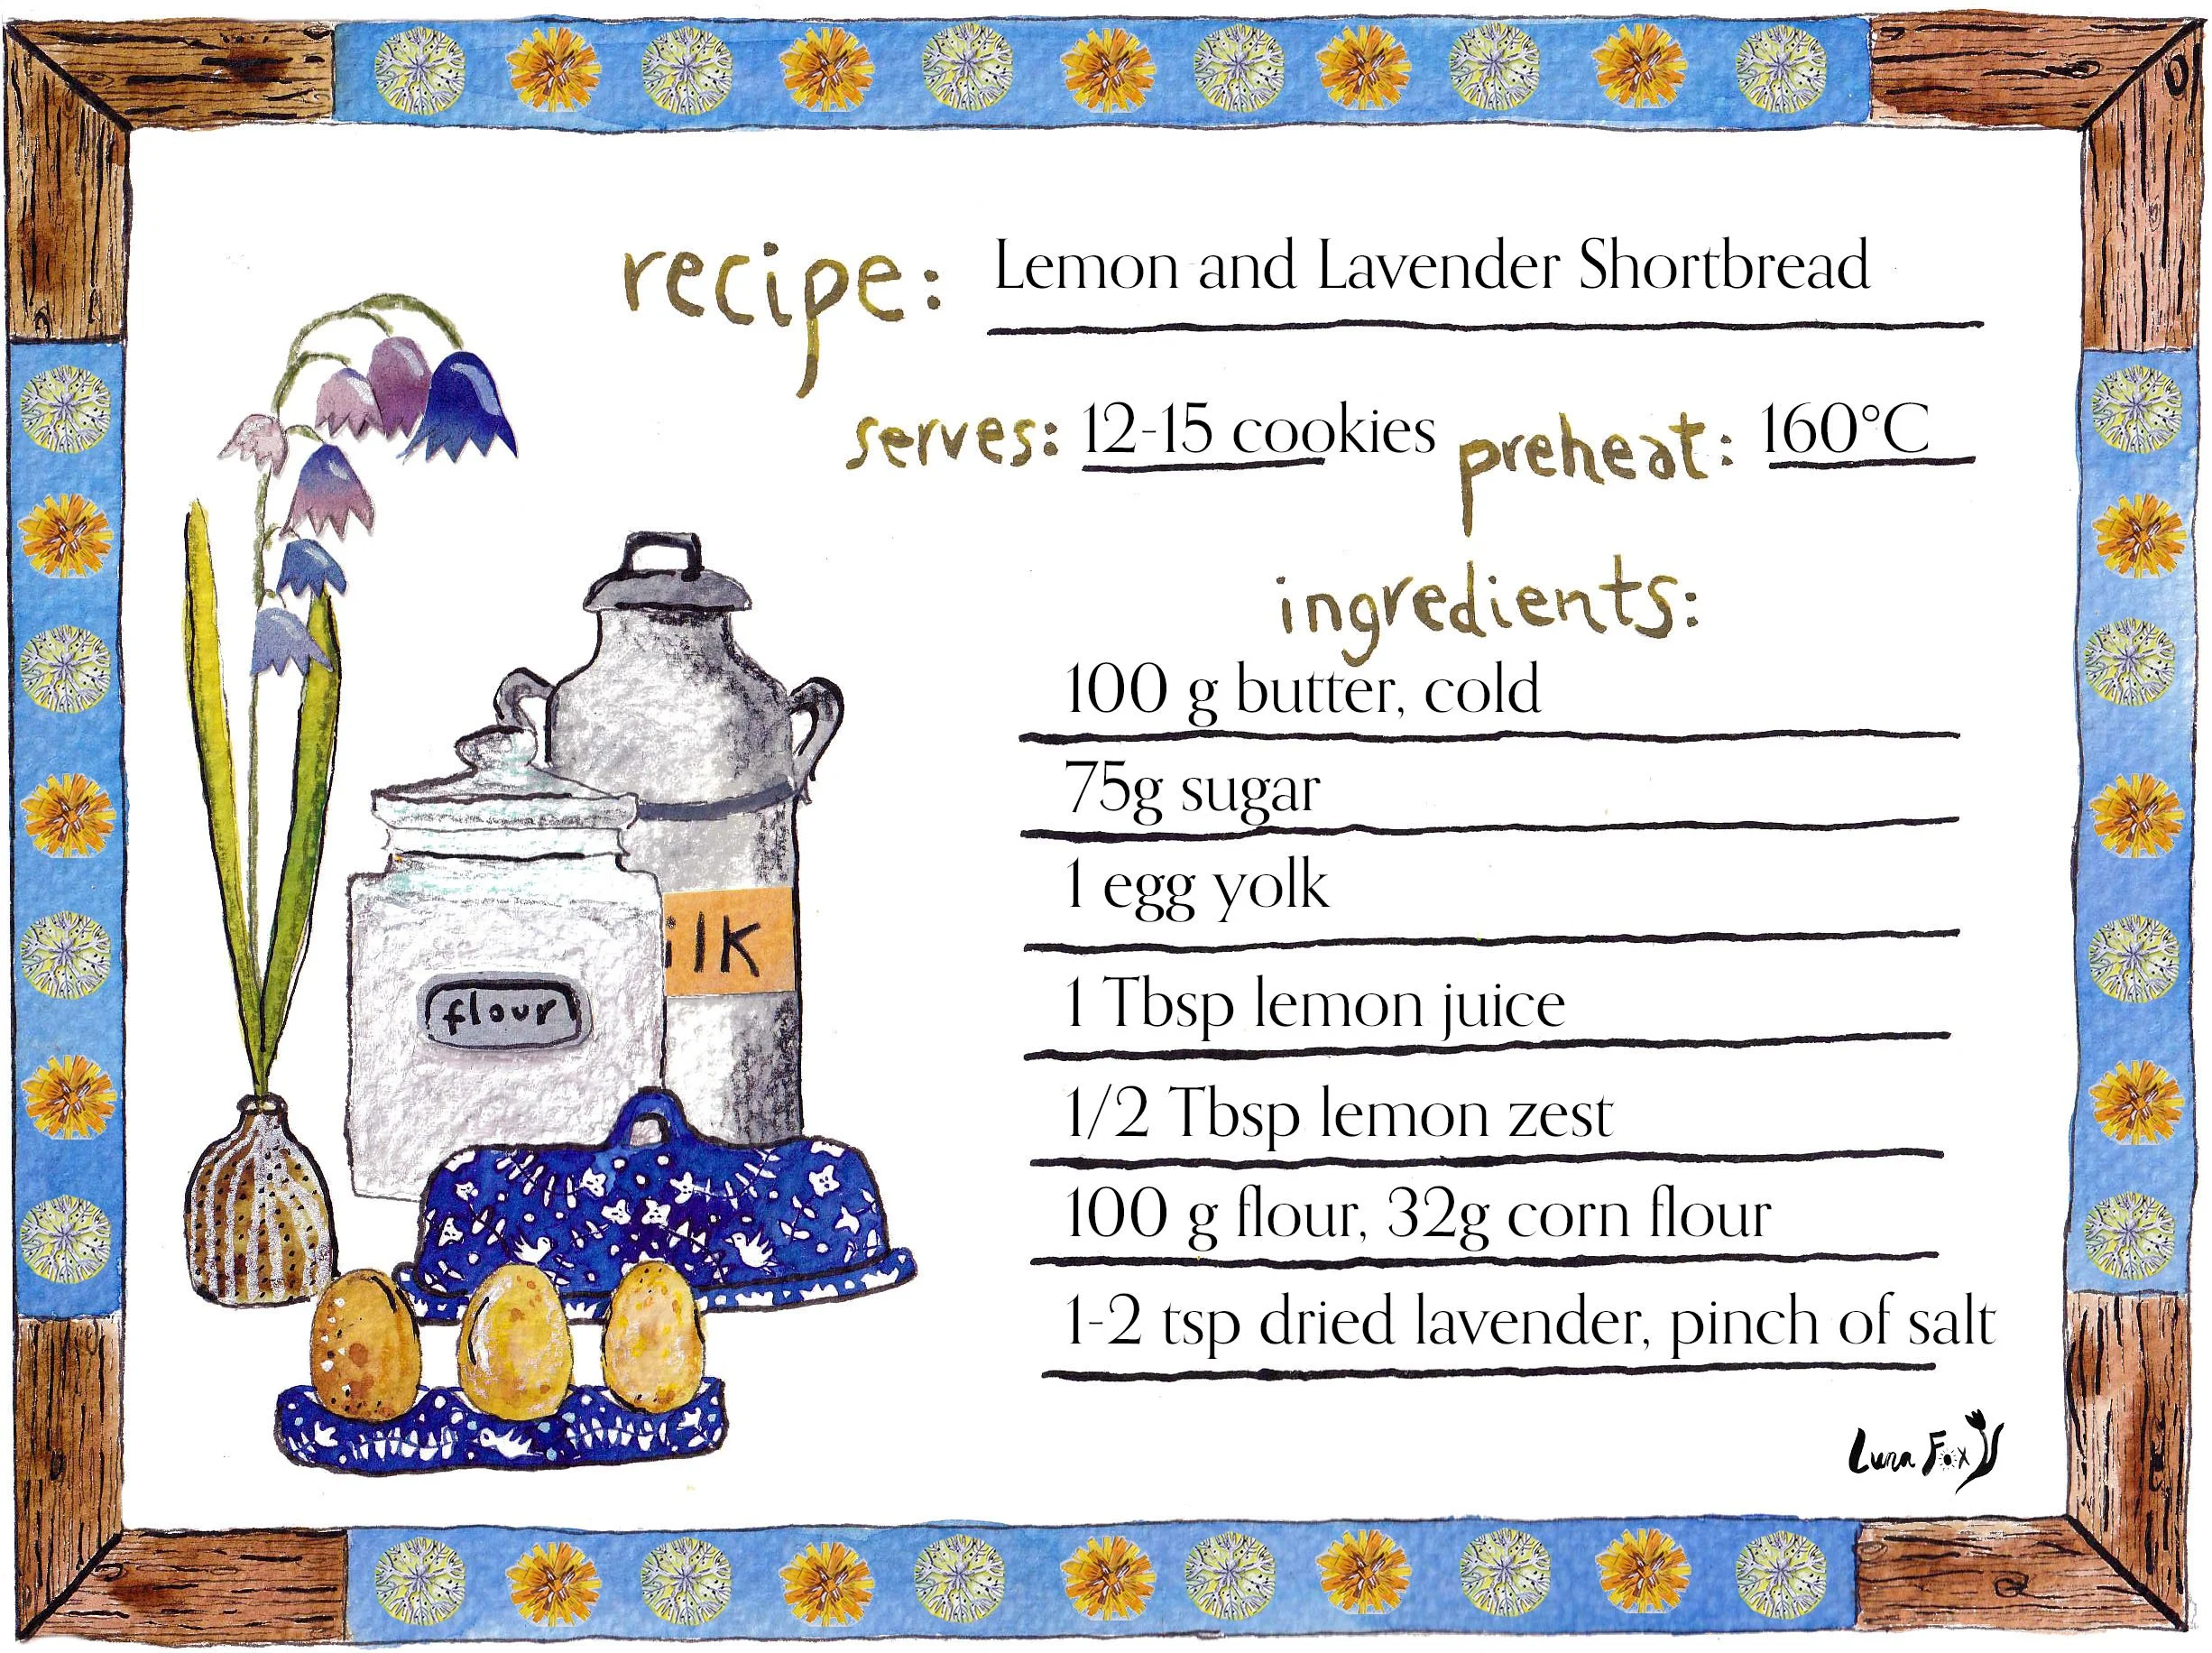 recipe: Lemon and Lavender Shortbread
serves: 12-15 cookies preheat: 160°C
ingredients:
100 g butter, cold
75g sugar
1 egg yolk
ilk
1 Tbsp lemon juice
flour
1/2 Tbsp lemon zest
100 g flour, 32g corn flour
1-2 tsp dried lavender, pinch of salt
Luna Fox